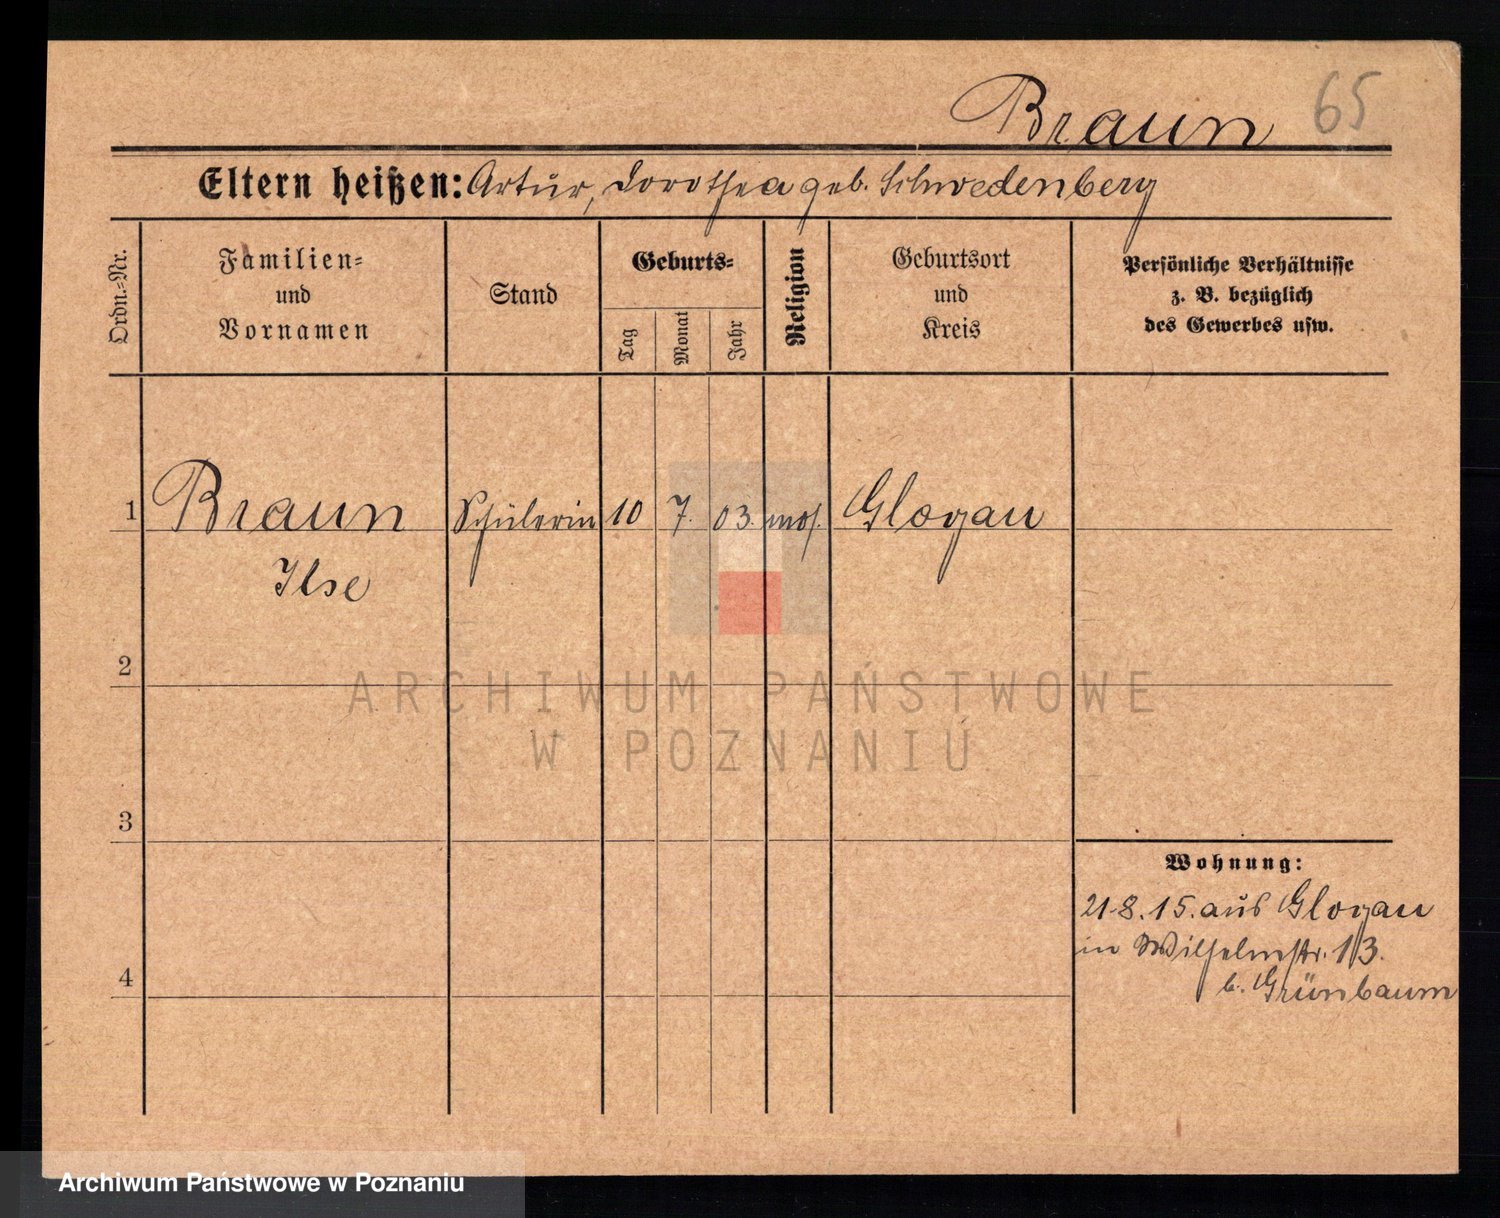 65
Braun
Eltern heißen: Artur, Dorothea geb. Schwedenberg
Ordn.-Nr.
Familien-
und
Vornamen
Stand
Geburts-
Tag
Monat
Jahr
Religion
Geburtsort
und
Kreis
Persönliche Verhältnisse
z. B. bezüglich
des Gewerbes usw.
1 Braun Schülerin 10 7. 03. mos. Glogau
Ilse
2
ARCHIWUM PAŃSTWOWE
W POZNANIU
3
Wohnung:
21.8.15. aus Glogau
in Wilhelmstr. 13.
b. Grünbaum
4
Archiwum Państwowe w Poznaniu